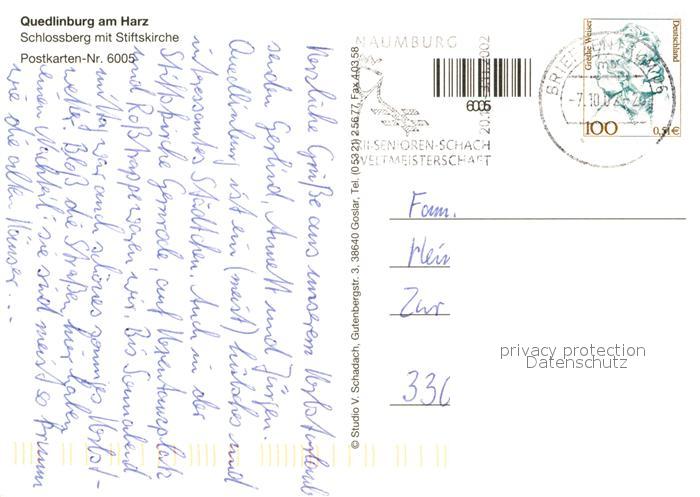 Quedlinburg am Harz
Schlossberg mit Stiftskirche
Postkarten-Nr. 6005
Herzliche Grüße aus unserem Herbsturlaub
senden Gerlind, Annett und Jürgen.
Quedlinburg ist ein (meist) hübsches und
interessantes Städtchen. Auch in der
Stiftskirche Gernrode, auf Hexentanzplatz
und Roßtrappe waren wir. Bis Sonnabend
mittag war auch schönes sonniges Herbst-
wetter. Bloß die Straßen hier haben
einen Nachteil: sie sind meist so krumm
wie die alten Häuser...
© Studio V. Schadach, Gutenbergstr. 3, 38640 Goslar, Tel. (0 53 21) 2 56 77, Fax 4 03 58
6005
NAUMBURG
SENIOREN-SCHACH
WELTMEISTERSCHAFT
BRIEFZENTRUM 06
-7.10.02
Grethe Weiser
Deutschland
100
0,51 €
Fam.
Klein
Zur
336
privacy protection
Datenschutz